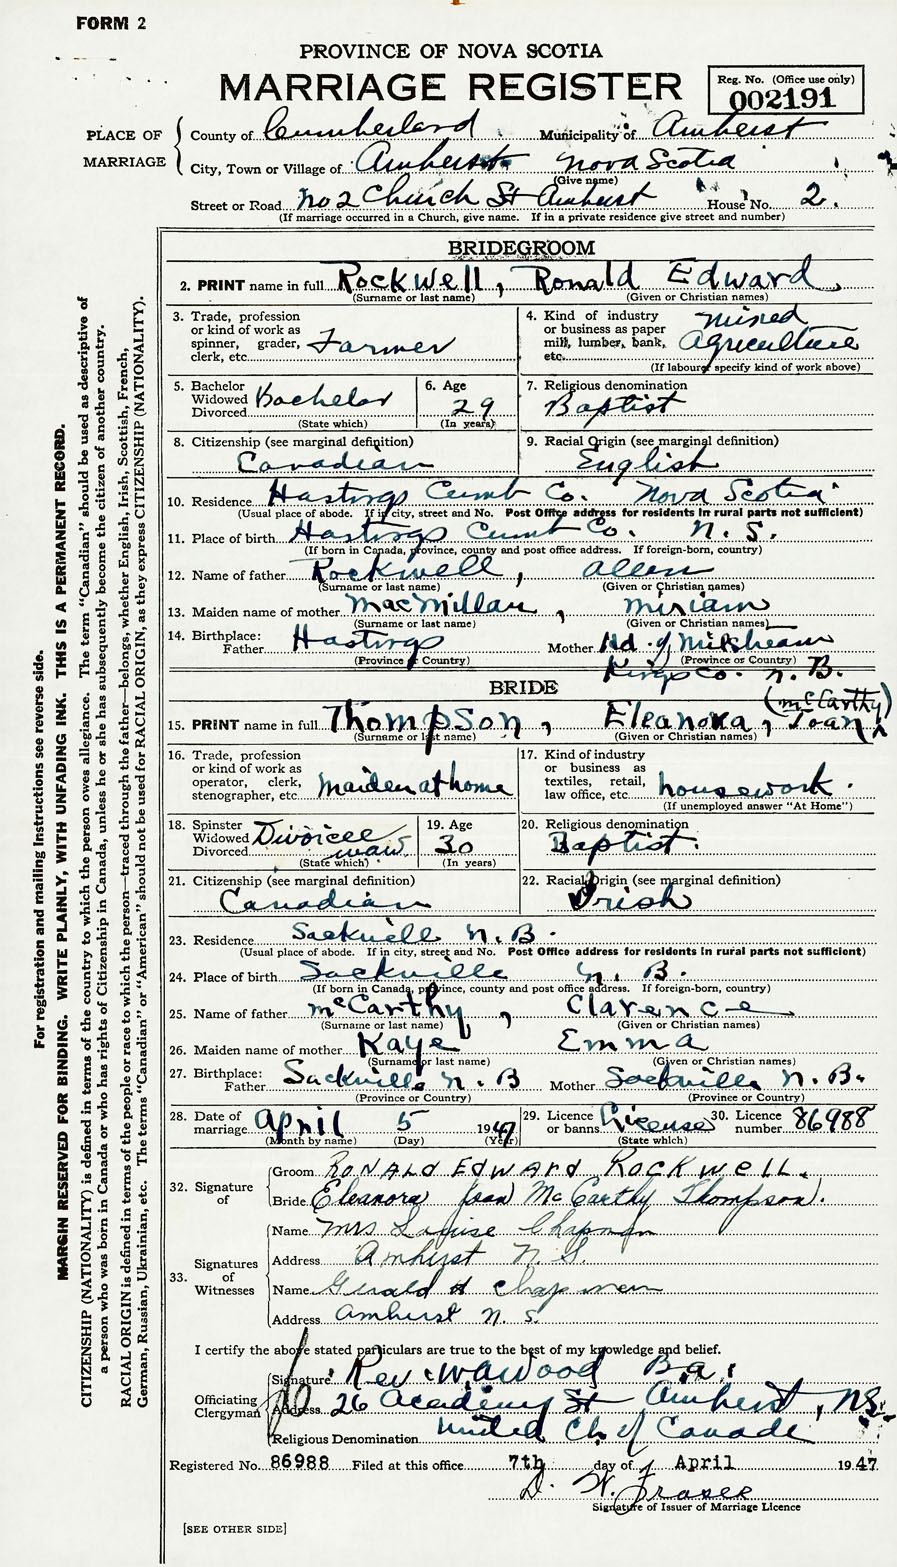 FORM 2
PROVINCE OF NOVA SCOTIA
MARRIAGE REGISTER
Reg. No. (Office use only)
002191
PLACE OF MARRIAGE
County of Cumberland Municipality of Amherst
City, Town or Village of Amherst Nova Scotia
(Give name)
Street or Road No 2 Church St Amherst House No. 2.
(If marriage occurred in a Church, give name. If in a private residence give street and number)
BRIDEGROOM
2. PRINT name in full Rockwell, Ronald Edward,
(Surname or last name) (Given or Christian names)
3. Trade, profession or kind of work as spinner, grader, clerk, etc. Farmer
4. Kind of industry or business as paper mill, lumber, bank, etc. Mixed Agriculture
(If labourer specify kind of work above)
5. Bachelor Widowed Divorced Bachelor
(State which)
6. Age 29
(In years)
7. Religious denomination Baptist
8. Citizenship (see marginal definition) Canadian
9. Racial Origin (see marginal definition) English
10. Residence Hastings Cumb Co. Nova Scotia
(Usual place of abode. If in city, street and No. Post Office address for residents in rural parts not sufficient)
11. Place of birth Hastings Cumb Co. N. S.
(If born in Canada, province, county and post office address. If foreign-born, country)
12. Name of father Rockwell, Allen
(Surname or last name) (Given or Christian names)
13. Maiden name of mother MacMillan, Miriam
(Surname or last name) (Given or Christian names)
14. Birthplace: Father Hastings Mother Hd. of Millstream
(Province or Country) (Province or Country)
Kings Co. N. B.
BRIDE
(McCarthy)
15. PRINT name in full Thompson, Eleanora, Joan
(Surname or last name) (Given or Christian names)
16. Trade, profession or kind of work as operator, clerk, stenographer, etc. maiden at home
17. Kind of industry or business as textiles, retail, law office, etc. housework.
(If unemployed answer "At Home")
18. Spinster Widowed Divorced Divorcee
(State which)
19. Age 30
(In years)
20. Religious denomination Baptist.
21. Citizenship (see marginal definition) Canadian
22. Racial Origin (see marginal definition) Irish
23. Residence Sackville N. B.
(Usual place of abode. If in city, street and No. Post Office address for residents in rural parts not sufficient)
24. Place of birth Sackville N. B.
(If born in Canada, province, county and post office address. If foreign-born, country)
25. Name of father McCarthy, Clarence
(Surname or last name) (Given or Christian names)
26. Maiden name of mother Kaye Emma
(Surname or last name) (Given or Christian names)
27. Birthplace: Father Sackville N. B Mother Sackville N. B.
(Province or Country) (Province or Country)
28. Date of marriage April 5 1947
(Month by name) (Day) (Year)
29. Licence or banns License
(State which)
30. Licence number 86988
32. Signature of
Groom RONALD EDWARD ROCKWELL.
Bride Eleanora (Jean) McCarthy Thompson.
33. Signatures of Witnesses
Name Mrs Louise Chapman
Address Amherst N. S.
Name Gerald H Chapman
Address Amherst N. S.
I certify the above stated particulars are true to the best of my knowledge and belief.
Officiating Clergyman
Signature Rev. W A Wood B.A.
Address 26 Academy St Amherst, N.S.
Religious Denomination United Ch. of Canada
Registered No. 86988 Filed at this office 7th day of April 1947
D. W. Fraser
Signature of Issuer of Marriage Licence
[SEE OTHER SIDE]
For registration and mailing instructions see reverse side.
MARGIN RESERVED FOR BINDING. WRITE PLAINLY, WITH UNFADING INK. THIS IS A PERMANENT RECORD.
CITIZENSHIP (NATIONALITY) is defined in terms of the country to which the person owes allegiance. The term "Canadian" should be used as descriptive of
a person who was born in Canada or who has rights of Citizenship in Canada, unless he or she has subsequently become the citizen of another country.
RACIAL ORIGIN is defined in terms of the people or race to which the person—traced through the father—belongs, whether English, Irish, Scottish, French,
German, Russian, Ukrainian, etc. The terms "Canadian" or "American" should not be used for RACIAL ORIGIN, as they express CITIZENSHIP (NATIONALITY).